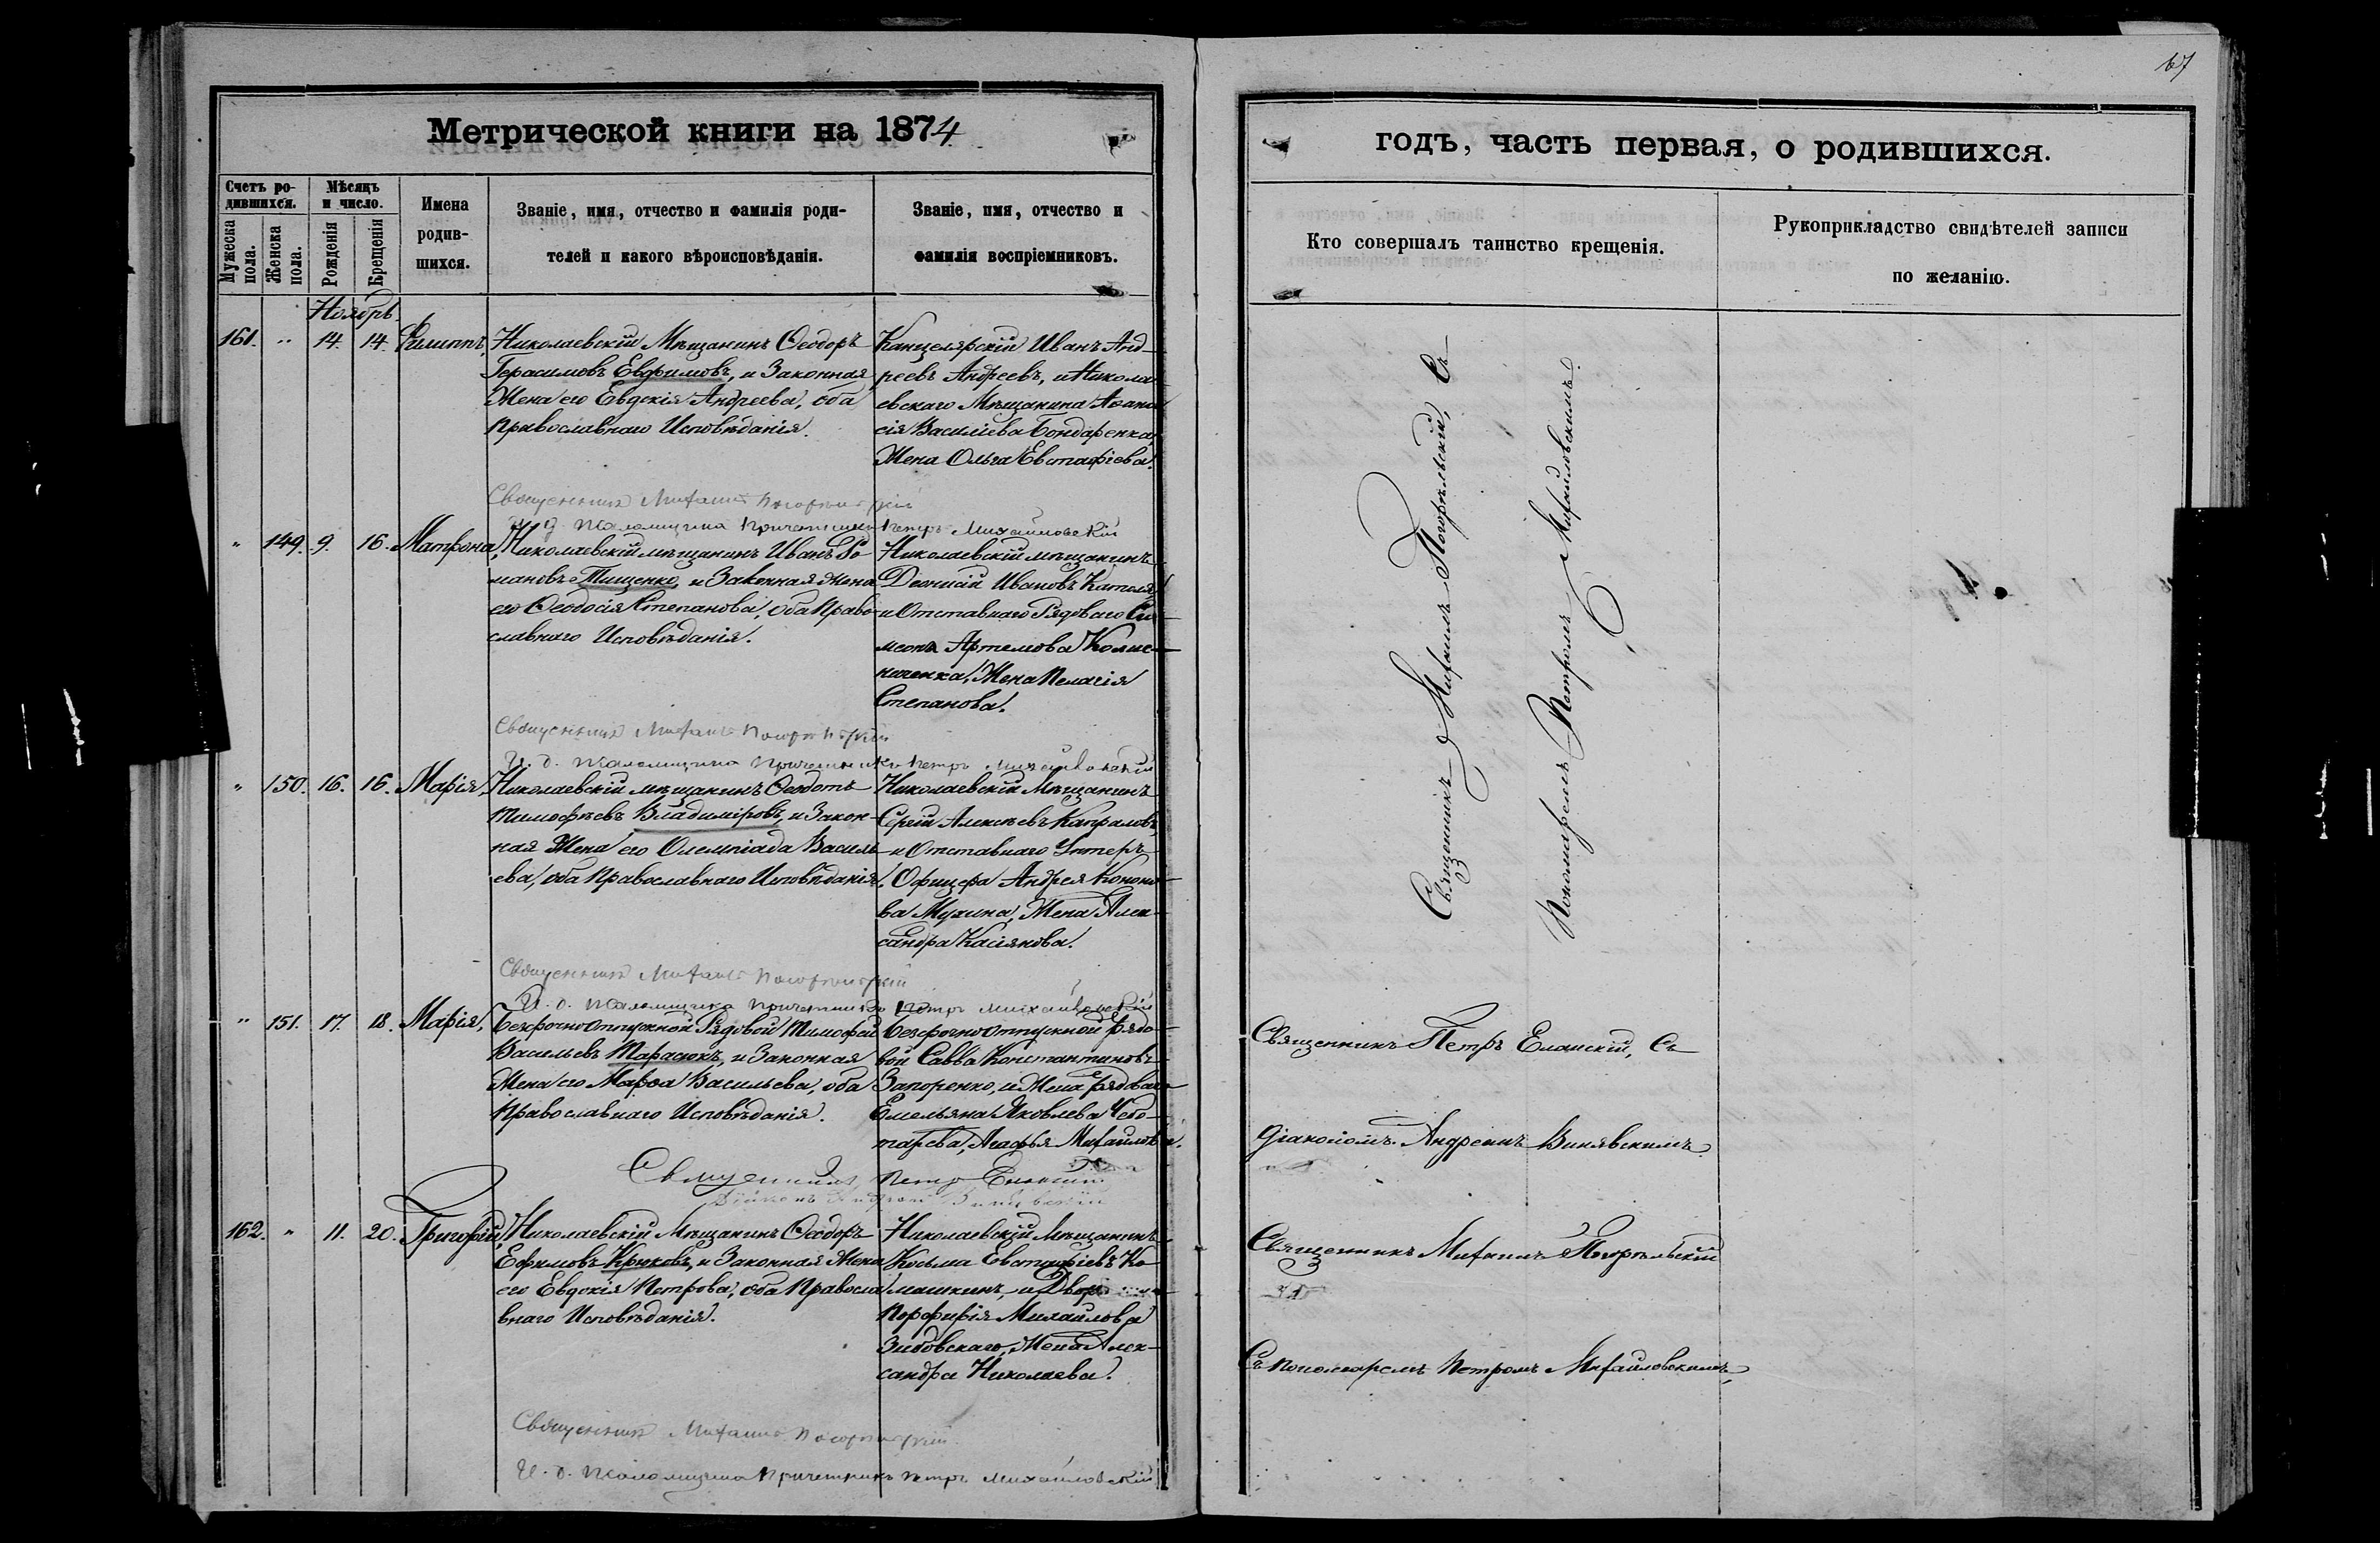 67
Метрической книги на 1874
годъ, часть первая, о родившихся.
Счетъ ро-
дившихся.
Мѣсяцъ
и число.
Мужеска
пола.
Женска
пола.
Рожденія
Крещенія
Имена
родив-
шихся.
Званіе, имя, отчество и фамилія роди-
телей и какого вѣроисповѣданія.
Званіе, имя, отчество и
фамилія воспріемниковъ.
Кто совершалъ таинство крещенія.
Рукоприкладство свидѣтелей записи
по желанію.
Ноябрь.
161. " 14. 14. Филиппъ,
Николаевскій Мѣщанинъ Ѳеодоръ
Герасимовъ Евфимовъ, и Законная
Жена его Евдокія Андреева, оба
Православнаго Исповѣданія.
Канцелярскій Иванъ Анд-
реевъ Андреевъ, и Никола-
евскаго Мѣщанина Аѳана
сія Василіева Бондаренка,
Жена Ольга Евстафіева.
Священникъ Михаилъ Погорѣльскій
И. д. Псаломщика Причетникъ Петръ Михайловскій
" 149. 9. 16. Матрона,
Николаевскій мѣщанинъ Иванъ Ро-
мановъ Тищенко, и Законная жена
его Ѳеодосія Степанова, оба Право-
славнаго Исповѣданія.
Николаевскій мѣщанинъ
Деонисій Ивановъ
и Отставнаго Рядоваго Си-
меона Артемова
Жена Пелагія
Степанова.
Священникъ Михаилъ Погорѣльскій
И. д. Псаломщика Причетникъ Петръ Михайловскій
" 150. 16. 16. Марія,
Николаевскій мѣщанинъ Ѳеодотъ
Тимофѣевъ Владиміровъ, и Закон-
ная Жена его Олемпіада Василь-
ева, оба Православнаго Исповѣданія.
Николаевскій Мѣщанинъ
Сергій Алексѣевъ Капраловъ,
и Отставнаго Унтеръ-
Офицера Андрея Кононо-
ва Мухина, Жена Алек-
сандра Касіянова.
Священникъ Михаилъ Погорѣльскій
И. д. Псаломщика Причетникъ Петръ Михайловскій
" 151. 17. 18. Марія,
Безсрочноотпускной Рядовой Тимофей
Васильевъ Тарасюкъ, и Законная
Жена его Марѳа Васильева, оба
Православнаго Исповѣданія.
Безсрочноотпускной рядо-
вой Савва Константиновъ
Запоренко, и Жена рядоваго
Емельяна Яковлева Чебо-
тарева, Агафья Михайлова.
Священникъ Петръ Еланскій
Діаконъ Андрей
162. " 11. 20. Григорій,
Николаевскій Мѣщанинъ Ѳеодоръ
Ефимовъ Крюковъ, и Законная Жена
его Евдокія Петрова, оба Правосла
внаго Исповѣданія.
Николаевскій Мѣщанинъ
Косьма Евстафіевъ Ко-
машкинъ, и
Порфирія Михайлова
Зибовскаго, Жена Алек-
сандра Николаева.
Священникъ Михаилъ Погорѣльскій
И. д. Псаломщика Причетникъ Петръ Михайловскій
Священникъ Михаилъ Погорѣльскій, Съ
Пономаремъ Петромъ Михайловскимъ.
Священникъ Петръ Еланскій, Съ
Діакономъ Андреемъ Винявскимъ.
Священникъ Михаилъ Погорѣльскій
Съ пономаремъ Петромъ Михайловскимъ,